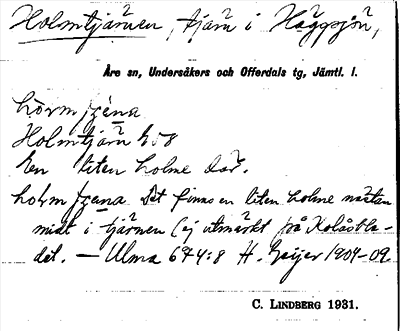 Holmtjärnen, tjärn i Häggsjön,
Åre sn, Undersåkers och Offerdals tg, Jämtl. l.
Holmtjärn
En liten holme där.
Det finns en liten holme nästan
midt i tjärnen (ej utmärkt på Kolåsbla-
det. — Ulma 694:8 H. Geijer 1904-09
C. LINDBERG 1931.